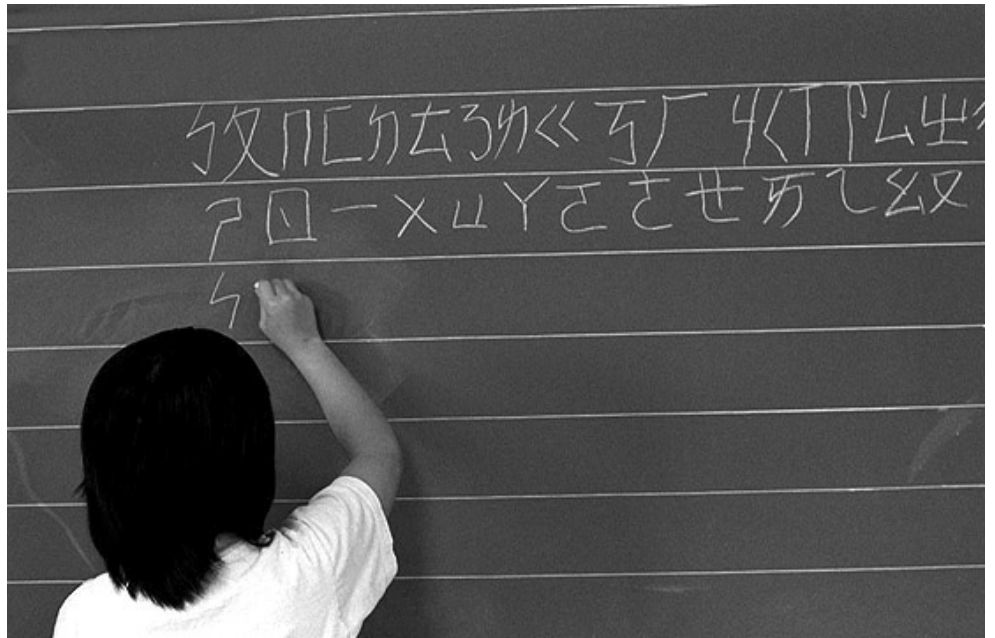 ㄅㄆㄇㄈㄉㄊㄋㄌㄍㄎㄏㄐㄑㄒㄗㄙㄓ
ㄕㄖㄧㄨㄩㄚㄛㄜㄝㄞㄟㄠㄡ
ㄣ